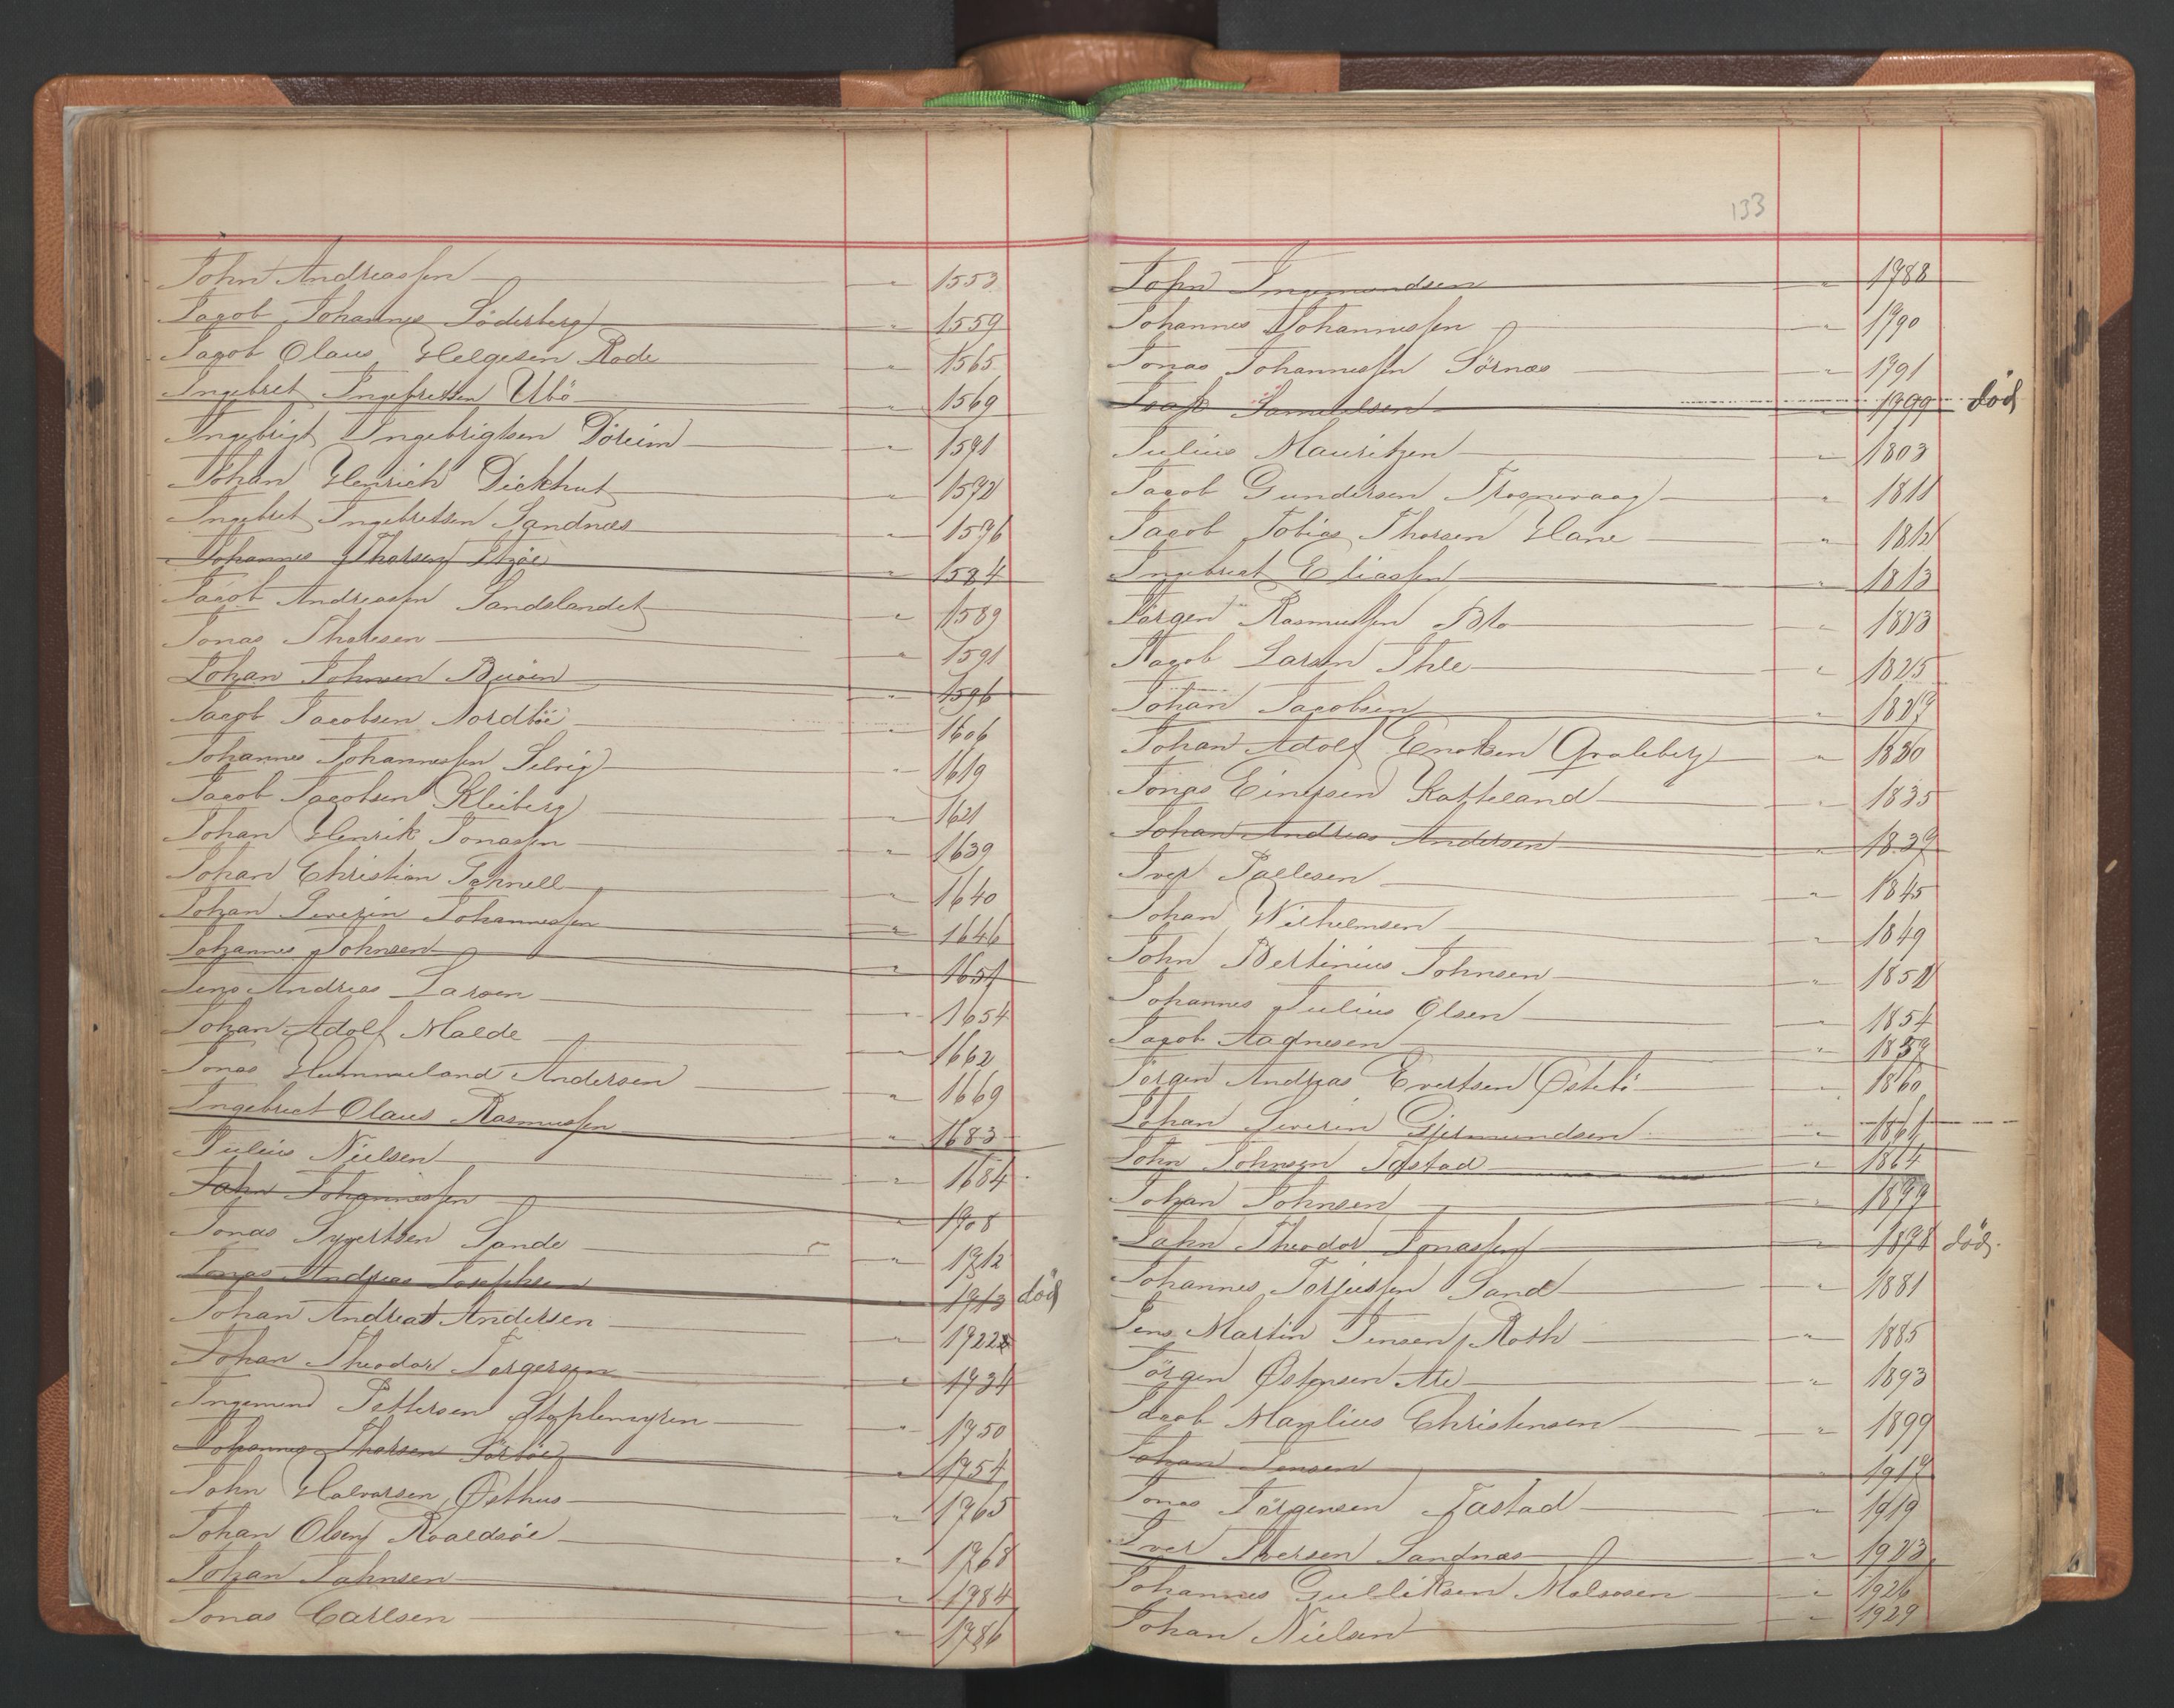 John Andreassen " 1553
Jacob Johannes Söderberg " 1559
Jacob Olaus Helgesen Rode " 1565
Ingebret Ingebretsen Ubö " 1569
Ingebrigt Ingebrigtsen Döreim " 1571
Johan Henrich Dickhut " 1572
Ingebret Ingebretsen Sandnæs " 1576
Johannes Thorsen " 1584
Jacob Andreassen Sandslandet " 1589
Jonas Thorsen " 1591
Johan Johnsen Buöen " 1596
Jacob Jacobsen Nordböe " 1606
Johannes Johannessen Selvig " 1619
Jacob Jacobsen Kleiberg " 1621
Johan Henrik Jonassen " 1639
Johan Christian Pahnell " 1640
Johan Severin Johannessen " 1646
Johannes Johnsen " 1651
Jens Andreas Larsen " 1654
Johan Adolf Malde " 1662
Jonas Hummeland Andersen " 1669
Ingebret Olaus Rasmussen " 1683
Julius Nielsen " 1684
John Johannessen " 1708
Jonas Syvertsen Sande " 1712
Jonas Andreas Josephsen " 1713 död
Johan Andreas Andersen " 1722
Johan Theodor Torgersen " 1734
Ingemund Pettersen Stoplemyren " 1750
Johannes Thorsen Sörböe " 1754
John Halvorsen Østhus " 1765
Johan Olsen Roaldsöe " 1768
Johan Johnsen " 1784
Jonas Carlsen " 1786
133
John Ingemundsen " 1788
Johannes Johannessen " 1790
Jonas Johannessen Sörnæs " 1791
Samuelsen " 1799 död
Julius Mauritzen " 1803
Jacob Gundersen Trosnevaag " 1811
Jacob Tobias Thorsen Hane " 1812
Ingebret Eliassen " 1813
Jörgen Rasmussen Bto " 1823
Jacob Larsen Ihle " 1825
Johan Jacobsen " 1827
Johan Adolf Enoksen Graleberg " 1830
Jonas Einersen Katteland " 1835
Johan Andreas Andersen " 1837
Iver Pallesen " 1845
Johan Wilhelmsen " 1849
John Bertinius Johnsen " 1852
Johannes Julius Olsen " 1854
Jacob Aagnesen " 1857
Jörgen Andreas Evertsen Østebö " 1860
Johan Severin Gjermundsen " 1861
John Johnsen Tastad " 1864
Johan Johnsen " 1877
John Theodor Jonassen " 1878 död.
Johannes Torjussen Sand " 1881
Jens Martin Jensen Roth " 1885
Jörgen Østensen Are " 1893
Jacob Maylius Christensen " 1899
Johan Jensen " 1917
Jonas Jörgensen Tastad " 1919
Iver Iversen Sandnæs " 1923
Johannes Gulliksen Molsosen " 1926
Johan Nielsen " 1929